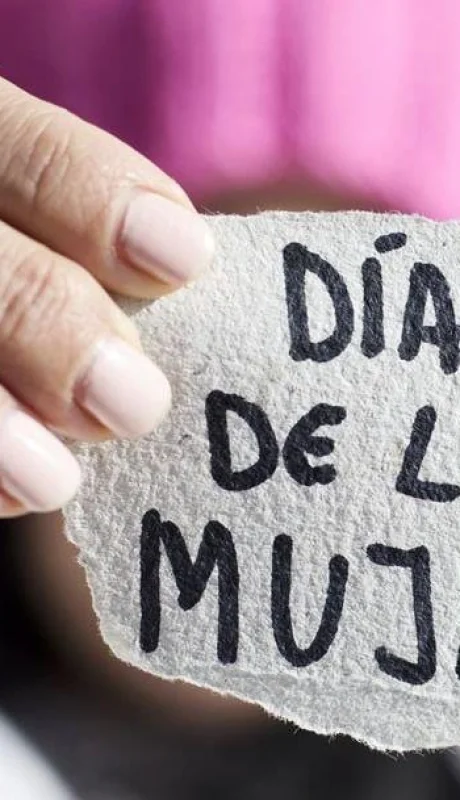 DÍA
DE L
MUJ